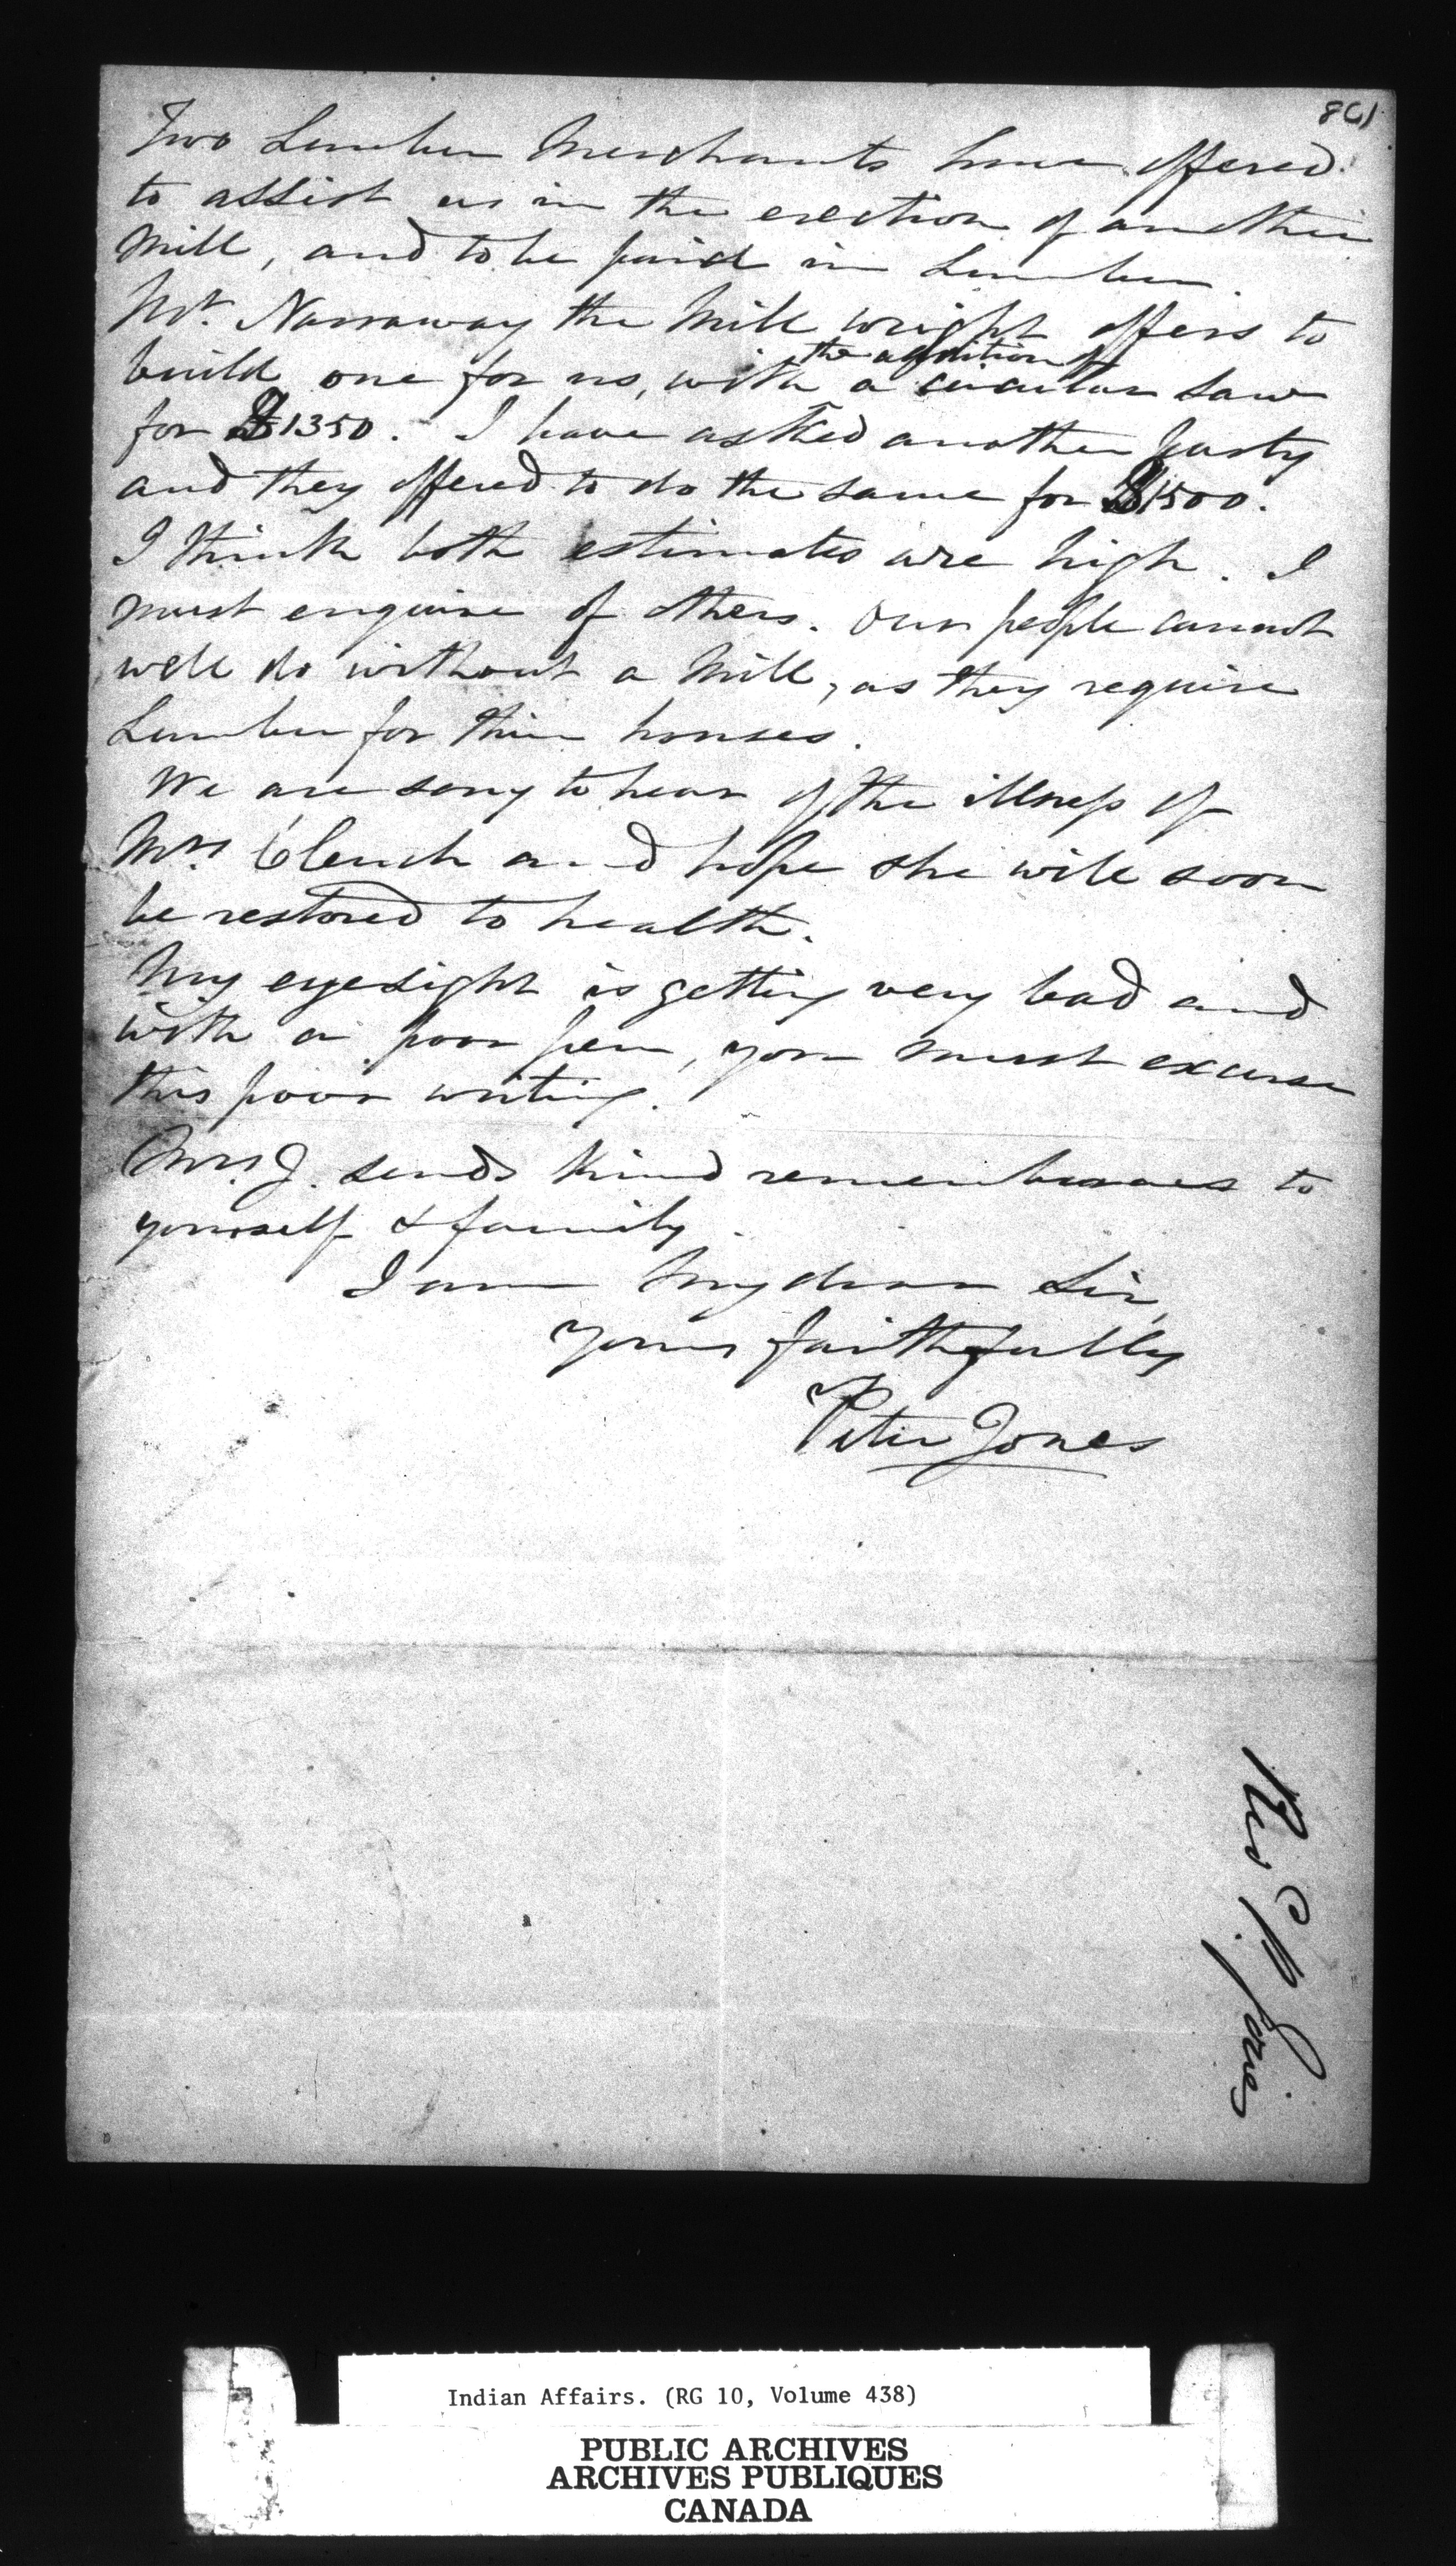 861
Two Lumber Merchants have offered
to assist us in the erection of another
Mill, and to be paid in Lumber.
Mr. Narraway the Mill wright offers to
the addition of
build one for us, with a circular saw
for $1350. I have asked another party
and they offered to do the same for $1500.
I think both estimates are high. I
must enquire of others. Our people cannot
well do without a Mill, as they require
Lumber for their houses.
We are sorry to hear of the illness of
Mrs. Clench and hope she will soon
be restored to health.
My eyesight is getting very bad and
with a poor pen, you must excuse
this poor writing.
Mrs. J. sends kind remembrances to
yourself & family.
I am My dear Sir,
Yours faithfully
Peter Jones
Rev P. Jones
Indian Affairs. (RG 10, Volume 438)
PUBLIC ARCHIVES
ARCHIVES PUBLIQUES
CANADA